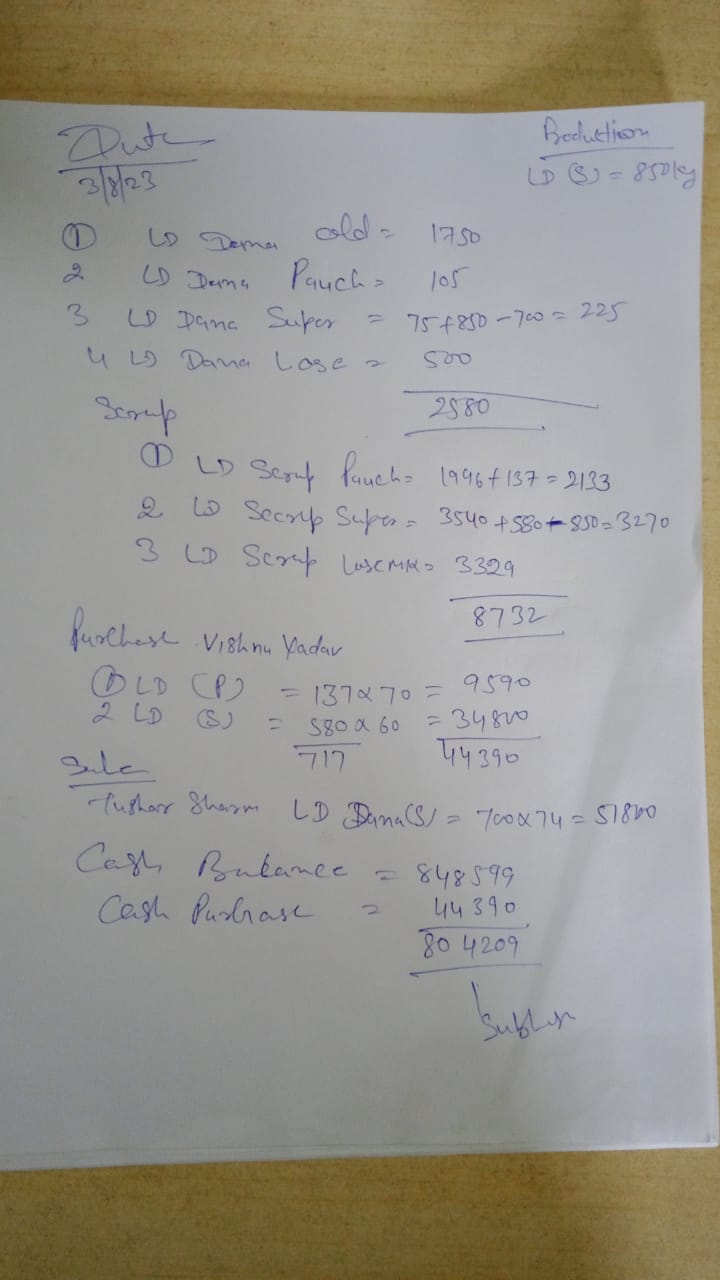 Date
3/8/23
Production
LD (S) = 850kg
① LD Dana old = 1750
2 LD Dana Pauch = 105
3 LD Dana Super = 75+850-700 = 225
4 LD Dana Lose = 500
2580
Scrap
① LD Scrap Pauch = 1996+137 = 2133
2 LD Sccrap Super = 3540+580-850 = 3270
3 LD Scrap Lose MIX = 3329
8732
Purchase Vishnu Yadav
① LD (P) = 137x70 = 9590
2 LD (S) = 580x60 = 34800
717 44390
Sale
Tushar Sharm LD Dana(S) = 700x74 = 51800
Cash Balance = 848599
Cash Purhase = 44390
804209